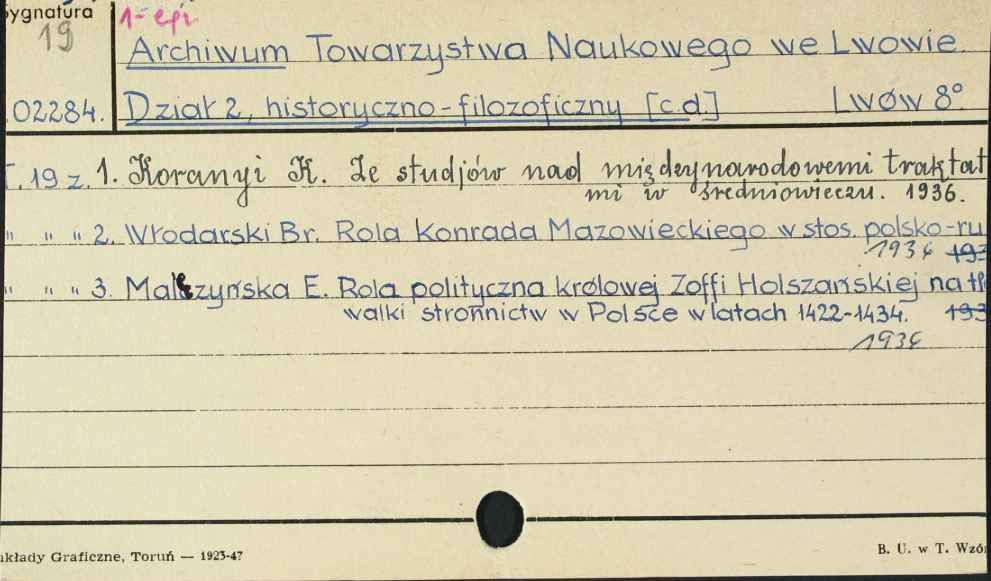 ygnatura 1-epi
19
Archiwum Towarzystwa Naukowego we Lwowie.
02284. Dział 2, historyczno-filozoficzny [c.d.] Lwów 8°
T. 19 z. 1. Koranyi K. Ze studjów nad międzynarodowemi traktat
mi w średniowieczu. 1936.
" " " 2. Włodarski Br. Rola Konrada Mazowieckiego w stos. polsko-ru
1936 193
" " " 3. Maleczyńska E. Rola polityczna królowej Zoffi Holszańskiej na tl
walki stronnictw w Polsce w latach 1422-1434. 193
1936
akłady Graficzne, Toruń — 1923-47
B. U. w T. Wzór